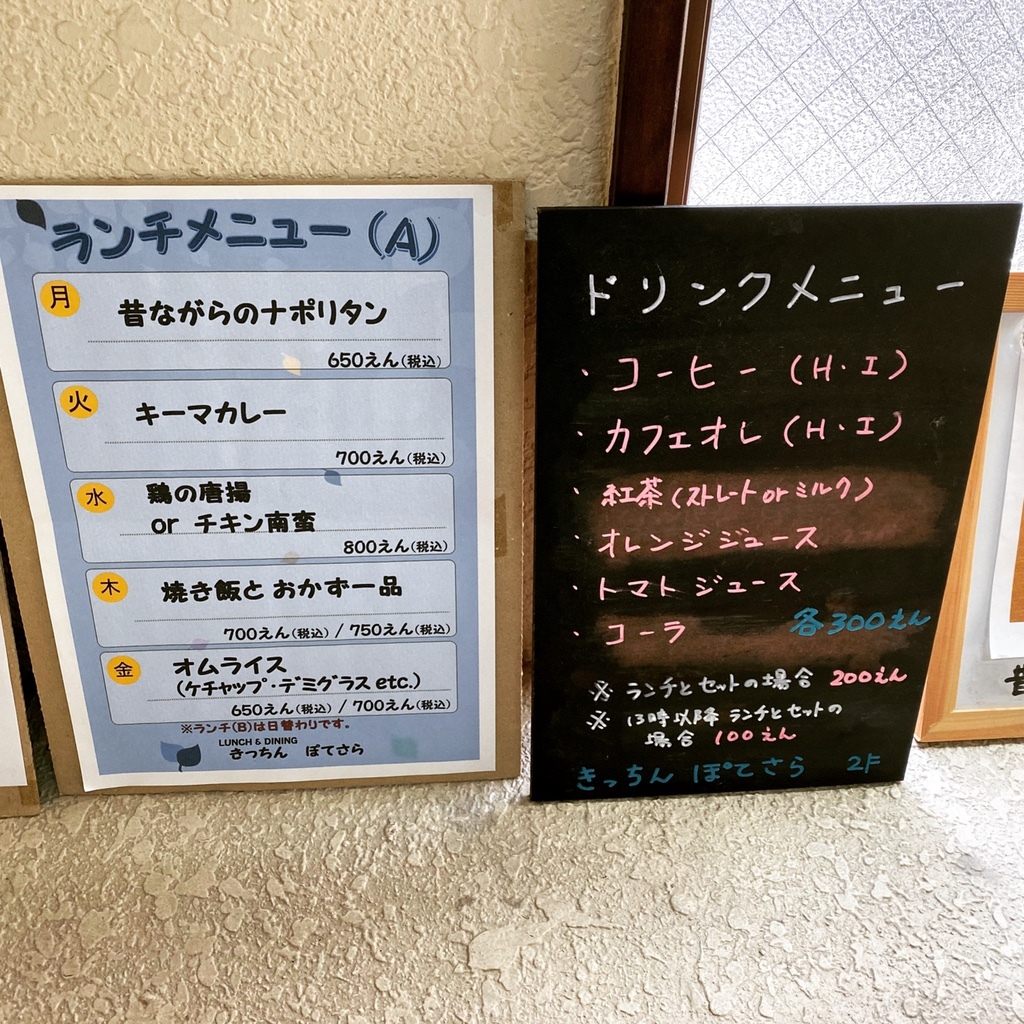 ランチメニュー(A)
月
昔ながらのナポリタン
650えん(税込)
火
キーマカレー
700えん(税込)
水
鶏の唐揚
or チキン南蛮
800えん(税込)
木
焼き飯と おかず一品
700えん(税込) / 750えん(税込)
金
オムライス
(ケチャップ・デミグラス etc.)
650えん(税込) / 700えん(税込)
※ランチ(B)は日替わりです。
LUNCH & DINING
きっちん ぽてさら
ドリンクメニュー
・コーヒー (H・I)
・カフェオレ (H・I)
・紅茶 (ストレート or ミルク)
・オレンジジュース
・トマトジュース
・コーラ 各300えん
※ ランチとセットの場合 200えん
※ 13時以降 ランチとセットの
場合 100えん
きっちん ぽてさら 2F
昔